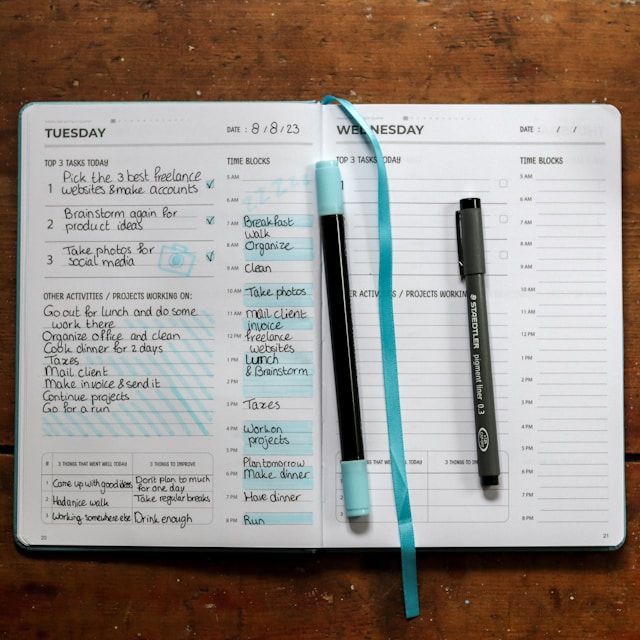 TUESDAY
DATE : 8/8/23
TOP 3 TASKS TODAY
1 Pick the 3 best freelance
websites & make accounts
2 Brainstorm again for
product ideas
3 Take photos for
social media
OTHER ACTIVITIES / PROJECTS WORKING ON:
Go out for lunch and do some
work there
Organize office and clean
Cook dinner for 2 days
Taxes
Mail client
Make invoice & send it
Continue projects
Go for a run
3 THINGS THAT WENT WELL TODAY
3 THINGS TO IMPROVE
1 Came up with good ideas
Don't plan to much
for one day
2 Had a nice walk
Take regular breaks
3 Working somewhere else
Drink enough
20
TIME BLOCKS
5 AM
ZZZZZ
6 AM
7 AM Breakfast
walk
8 AM Organize
9 AM Clean
10 AM Take photos
11 AM Mail client
invoice
12 PM freelance
websites
1 PM Lunch
& Brainstorm
2 PM
3 PM Taxes
4 PM Work on
projects
5 PM
Plan tomorrow
6 PM Make dinner
7 PM Have dinner
8 PM Run
WEDNESDAY
DATE : / /
TOP 3 TASKS TODAY
1
ACTIVITIES / PROJECTS WORKING
THINGS THAT WENT WELL TODAY
3 THINGS
TIME BLOCKS
5 AM
6 AM
7 AM
8 AM
9 AM
10 AM
11 AM
12 PM
1 PM
2 PM
3 PM
4 PM
5 PM
6 PM
7 PM
8 PM
21
STAEDTLER
pigment liner 0.3